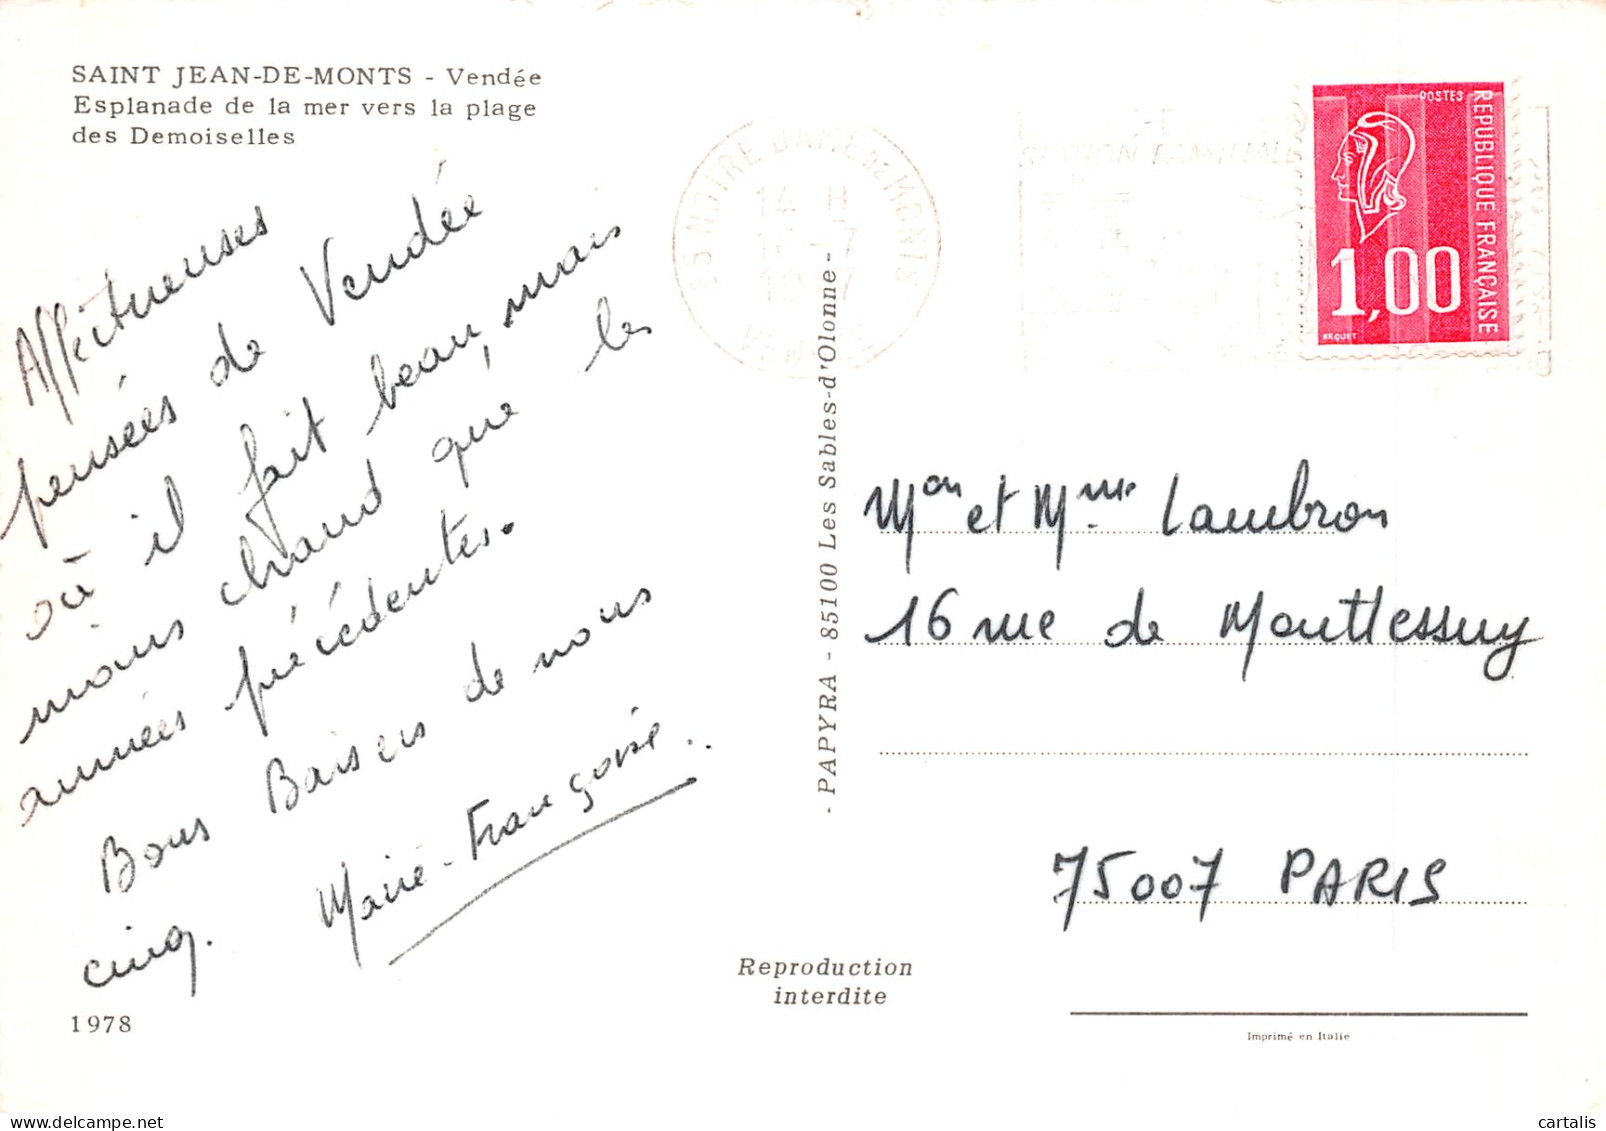 SAINT JEAN-DE-MONTS - Vendée
Esplanade de la mer vers la plage
des Demoiselles
Affectueuses
pensées de Vendée
où il fait beau, mais
moins chaud que les
années précédentes.
Bons Baisers de nous
cinq. Marie-Françoise..
1978
- PAPYRA - 85100 Les Sables-d'Olonne -
Reproduction
interdite
NOTRE DAME DE MONTS
14 H
POSTES
REPUBLIQUE FRANÇAISE
1,00
BEQUET
Mon et Mme Lambron
16 rue de Monttessuy
75007 PARIS
Imprimé en Italie
cartalis